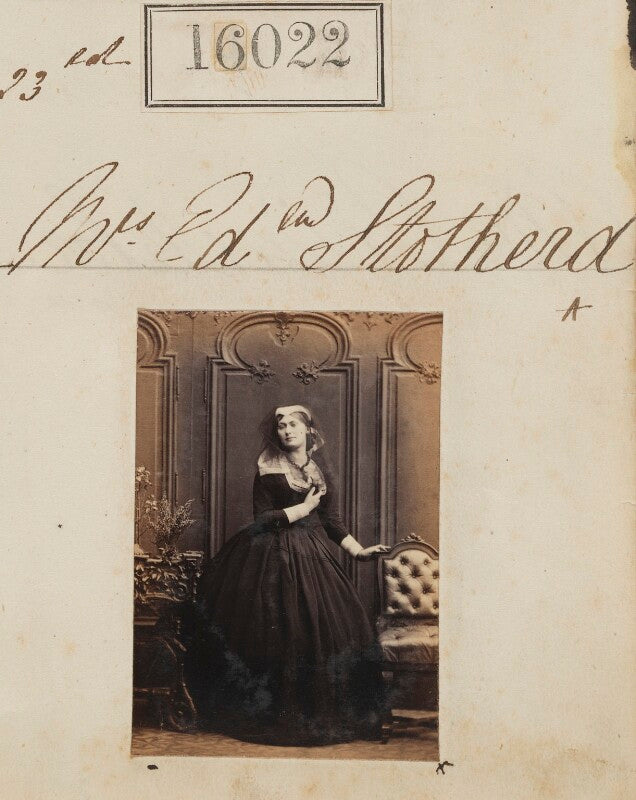 16022
23 ed
Mrs Edwd Stotherd
A